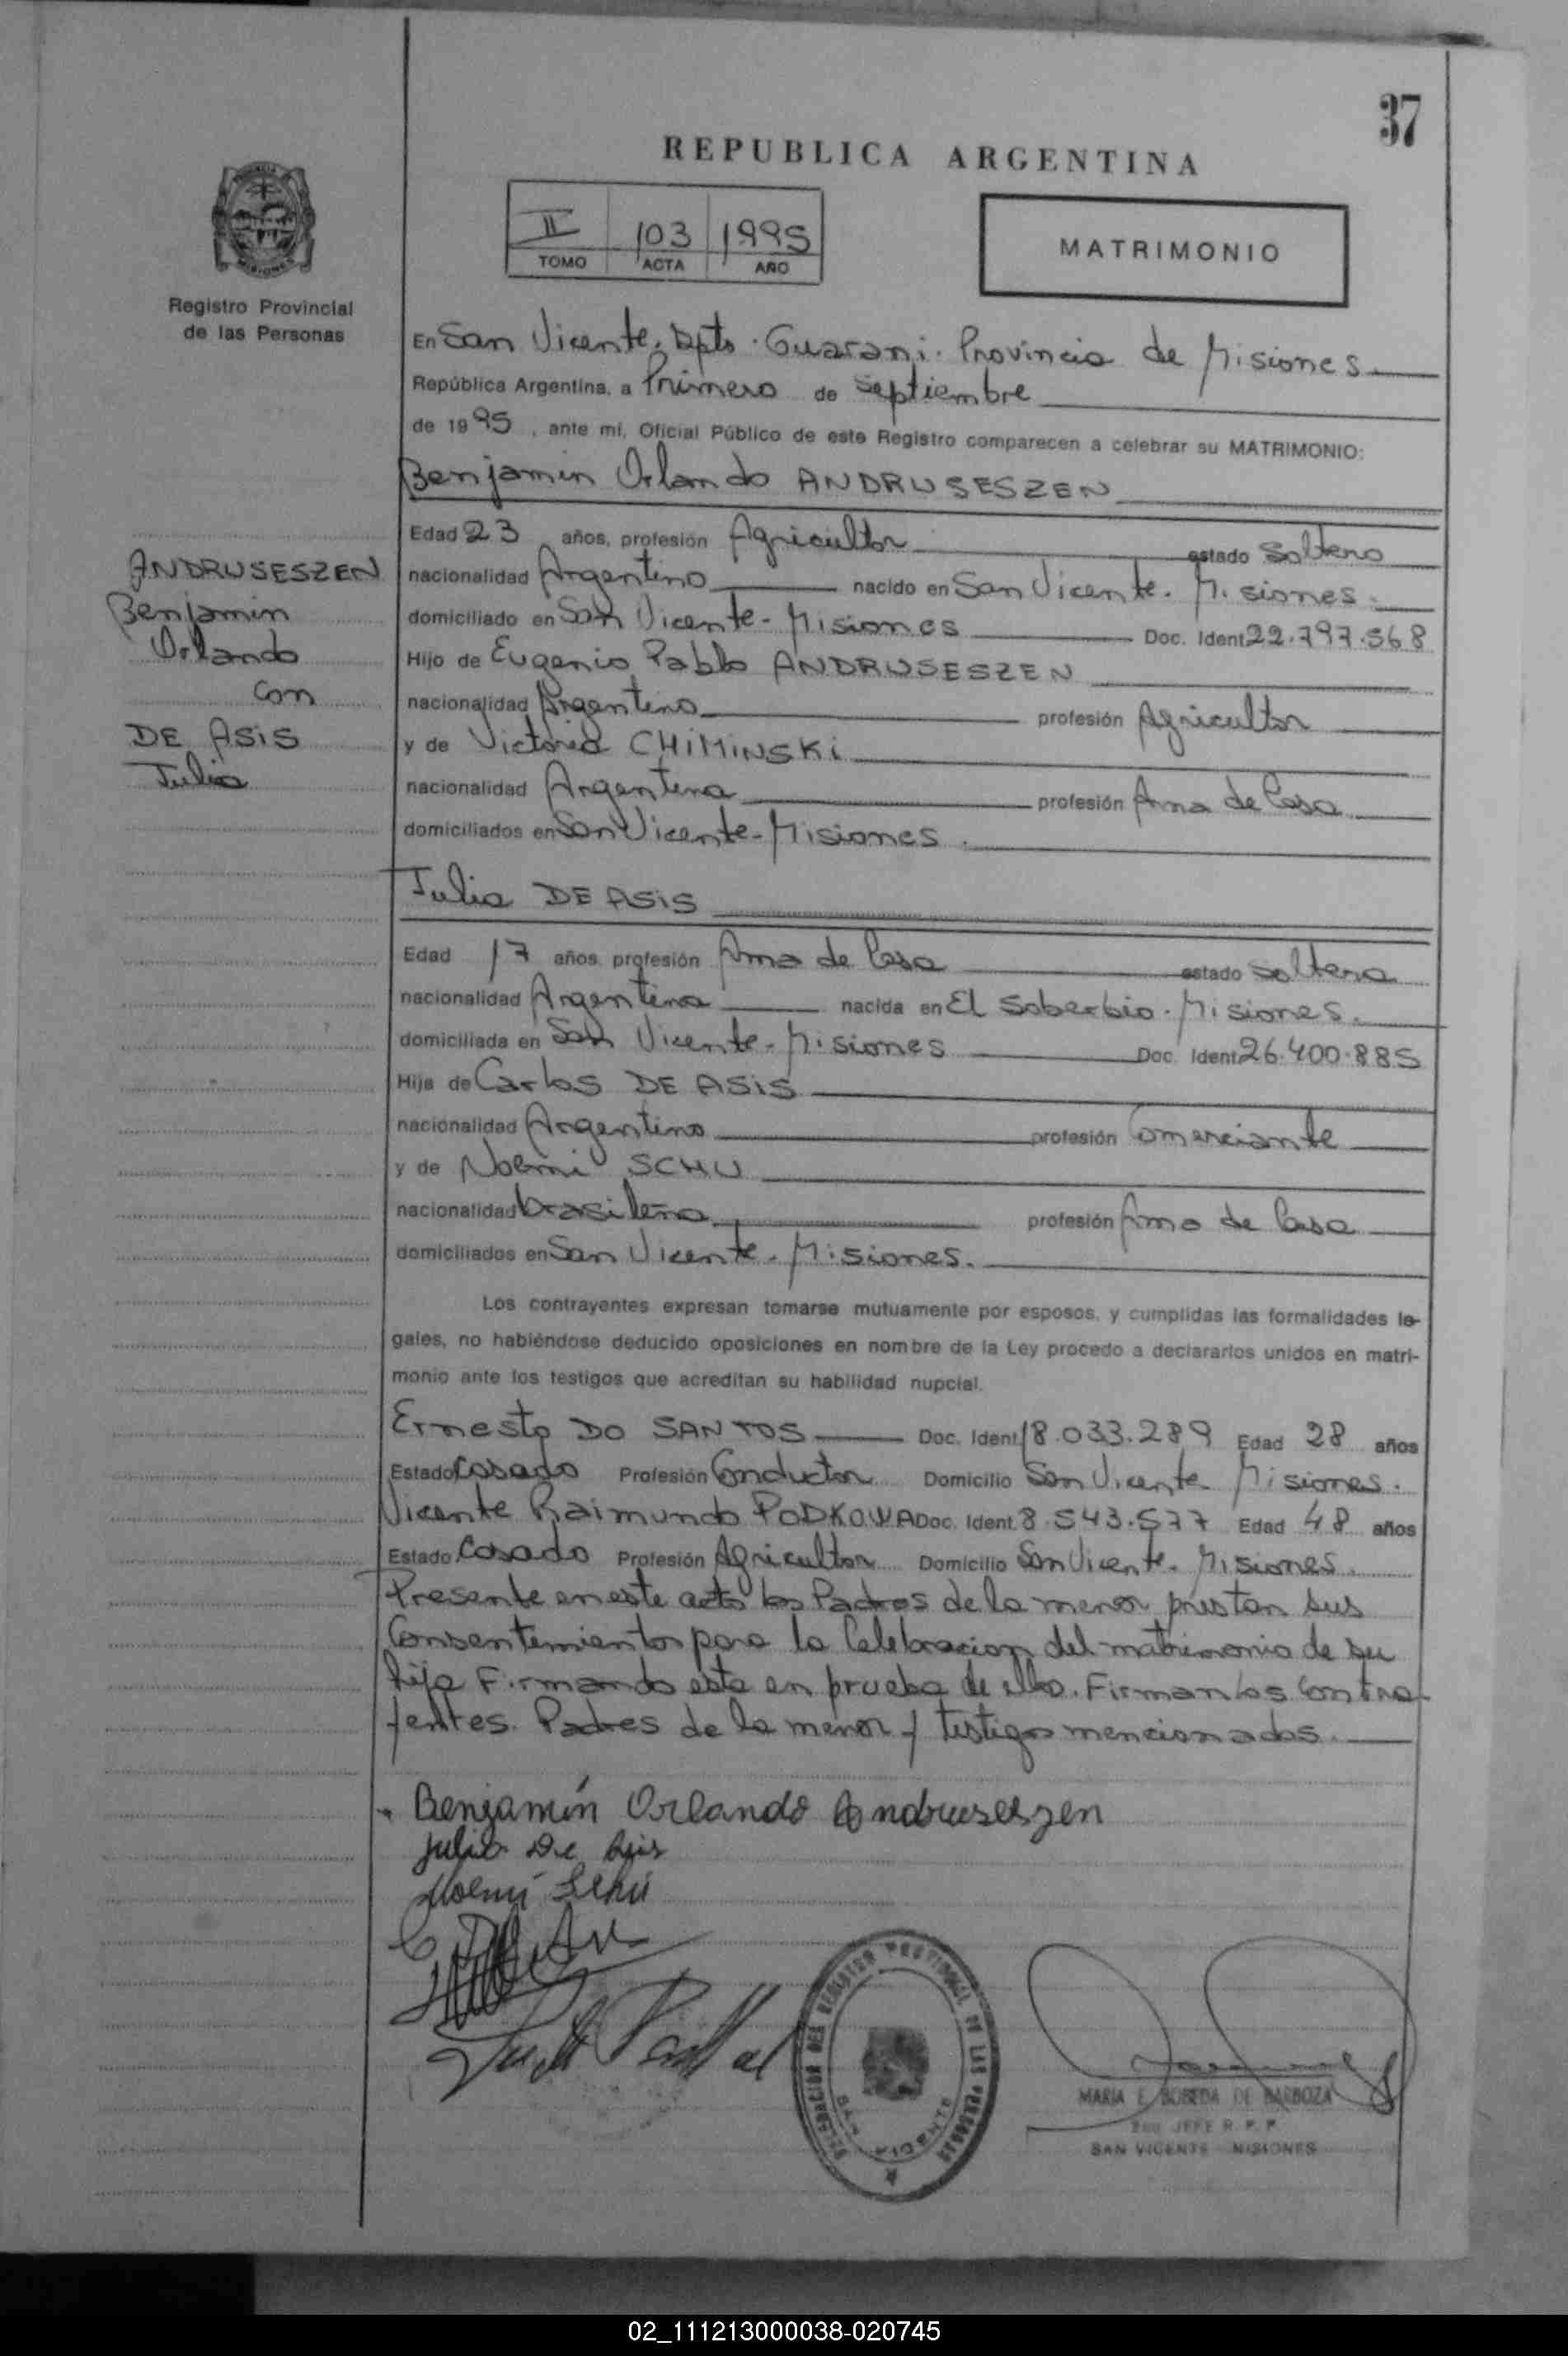 37
REPUBLICA ARGENTINA
II 103 1995
TOMO ACTA AÑO
MATRIMONIO
Registro Provincial
de las Personas
En San Vicente, Dpto. Guarani. Provincia de Misiones
República Argentina, a Primero de Septiembre
de 1995, ante mí, Oficial Público de este Registro comparecen a celebrar su MATRIMONIO:
Benjamin Orlando ANDRUSESZEN
Edad 23 años, profesión Agricultor estado Soltero
nacionalidad Argentino nacido en San Vicente. Misiones.
domiciliado en San Vicente - Misiones Doc. Ident 22.797.568
Hijo de Eugenio Pablo ANDRUSESZEN
nacionalidad Argentino profesión Agricultor
y de Victoria CHIMINSKI
nacionalidad Argentina profesión Ama de Casa
domiciliados en San Vicente - Misiones.
ANDRUSESZEN
Benjamin
Orlando
con
DE ASIS
Julia
Julia DE ASIS
Edad 17 años, profesión Ama de Casa estado soltera
nacionalidad Argentina nacida en El Soberbio. Misiones.
domiciliada en San Vicente - Misiones Doc. Ident 26.400.885
Hija de Carlos DE ASIS
nacionalidad Argentino profesión Comerciante
y de Noemi SCHU
nacionalidad brasileña profesión Ama de Casa
domiciliados en San Vicente - Misiones.
Los contrayentes expresan tomarse mutuamente por esposos, y cumplidas las formalidades le-
gales, no habiéndose deducido oposiciones en nombre de la Ley procedo a declararlos unidos en matri-
monio ante los testigos que acreditan su habilidad nupcial.
Ernesto DO SANTOS Doc. Ident. 18.033.289 Edad 28 años
Estado Casado Profesión Conductor Domicilio San Vicente Misiones.
Vicente Raimundo PODKOWA Doc. Ident. 8.543.577 Edad 48 años
Estado Casado Profesión Agricultor Domicilio San Vicente - Misiones.
Presente en este acto los Padres de la menor prestan sus
Consentemientos para la Celebracion del matrimonio de su
hija Firmando esta en prueba de ello. Firman los Contra-
yentes. Padres de la menor y testigos mencionados.
Benjamín Orlando Andruseszen
Julia De Asis
Noemí Schú
DELEGACION DEL REGISTRO PROVINCIAL DE LAS PERSONAS
SAN VICENTE
MARIA E. BOBEDA DE BARBOZA
JEFE R. P. P.
SAN VICENTE - MISIONES
02_111213000038-020745